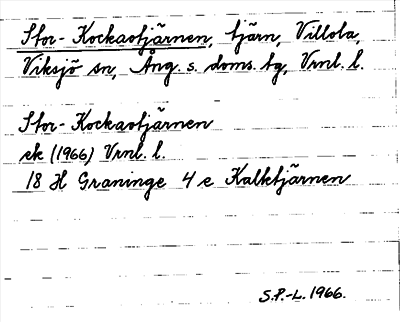 Stor-Kockaotjärnen, tjärn, Villola,
Viksjö sn, Ång. s. doms. tg, Vrnl. l.
Stor-Kockaotjärnen
ek (1966) Vrnl. l.
18 H Graninge 4 e Kalktjärnen
S.P.-L. 1966.